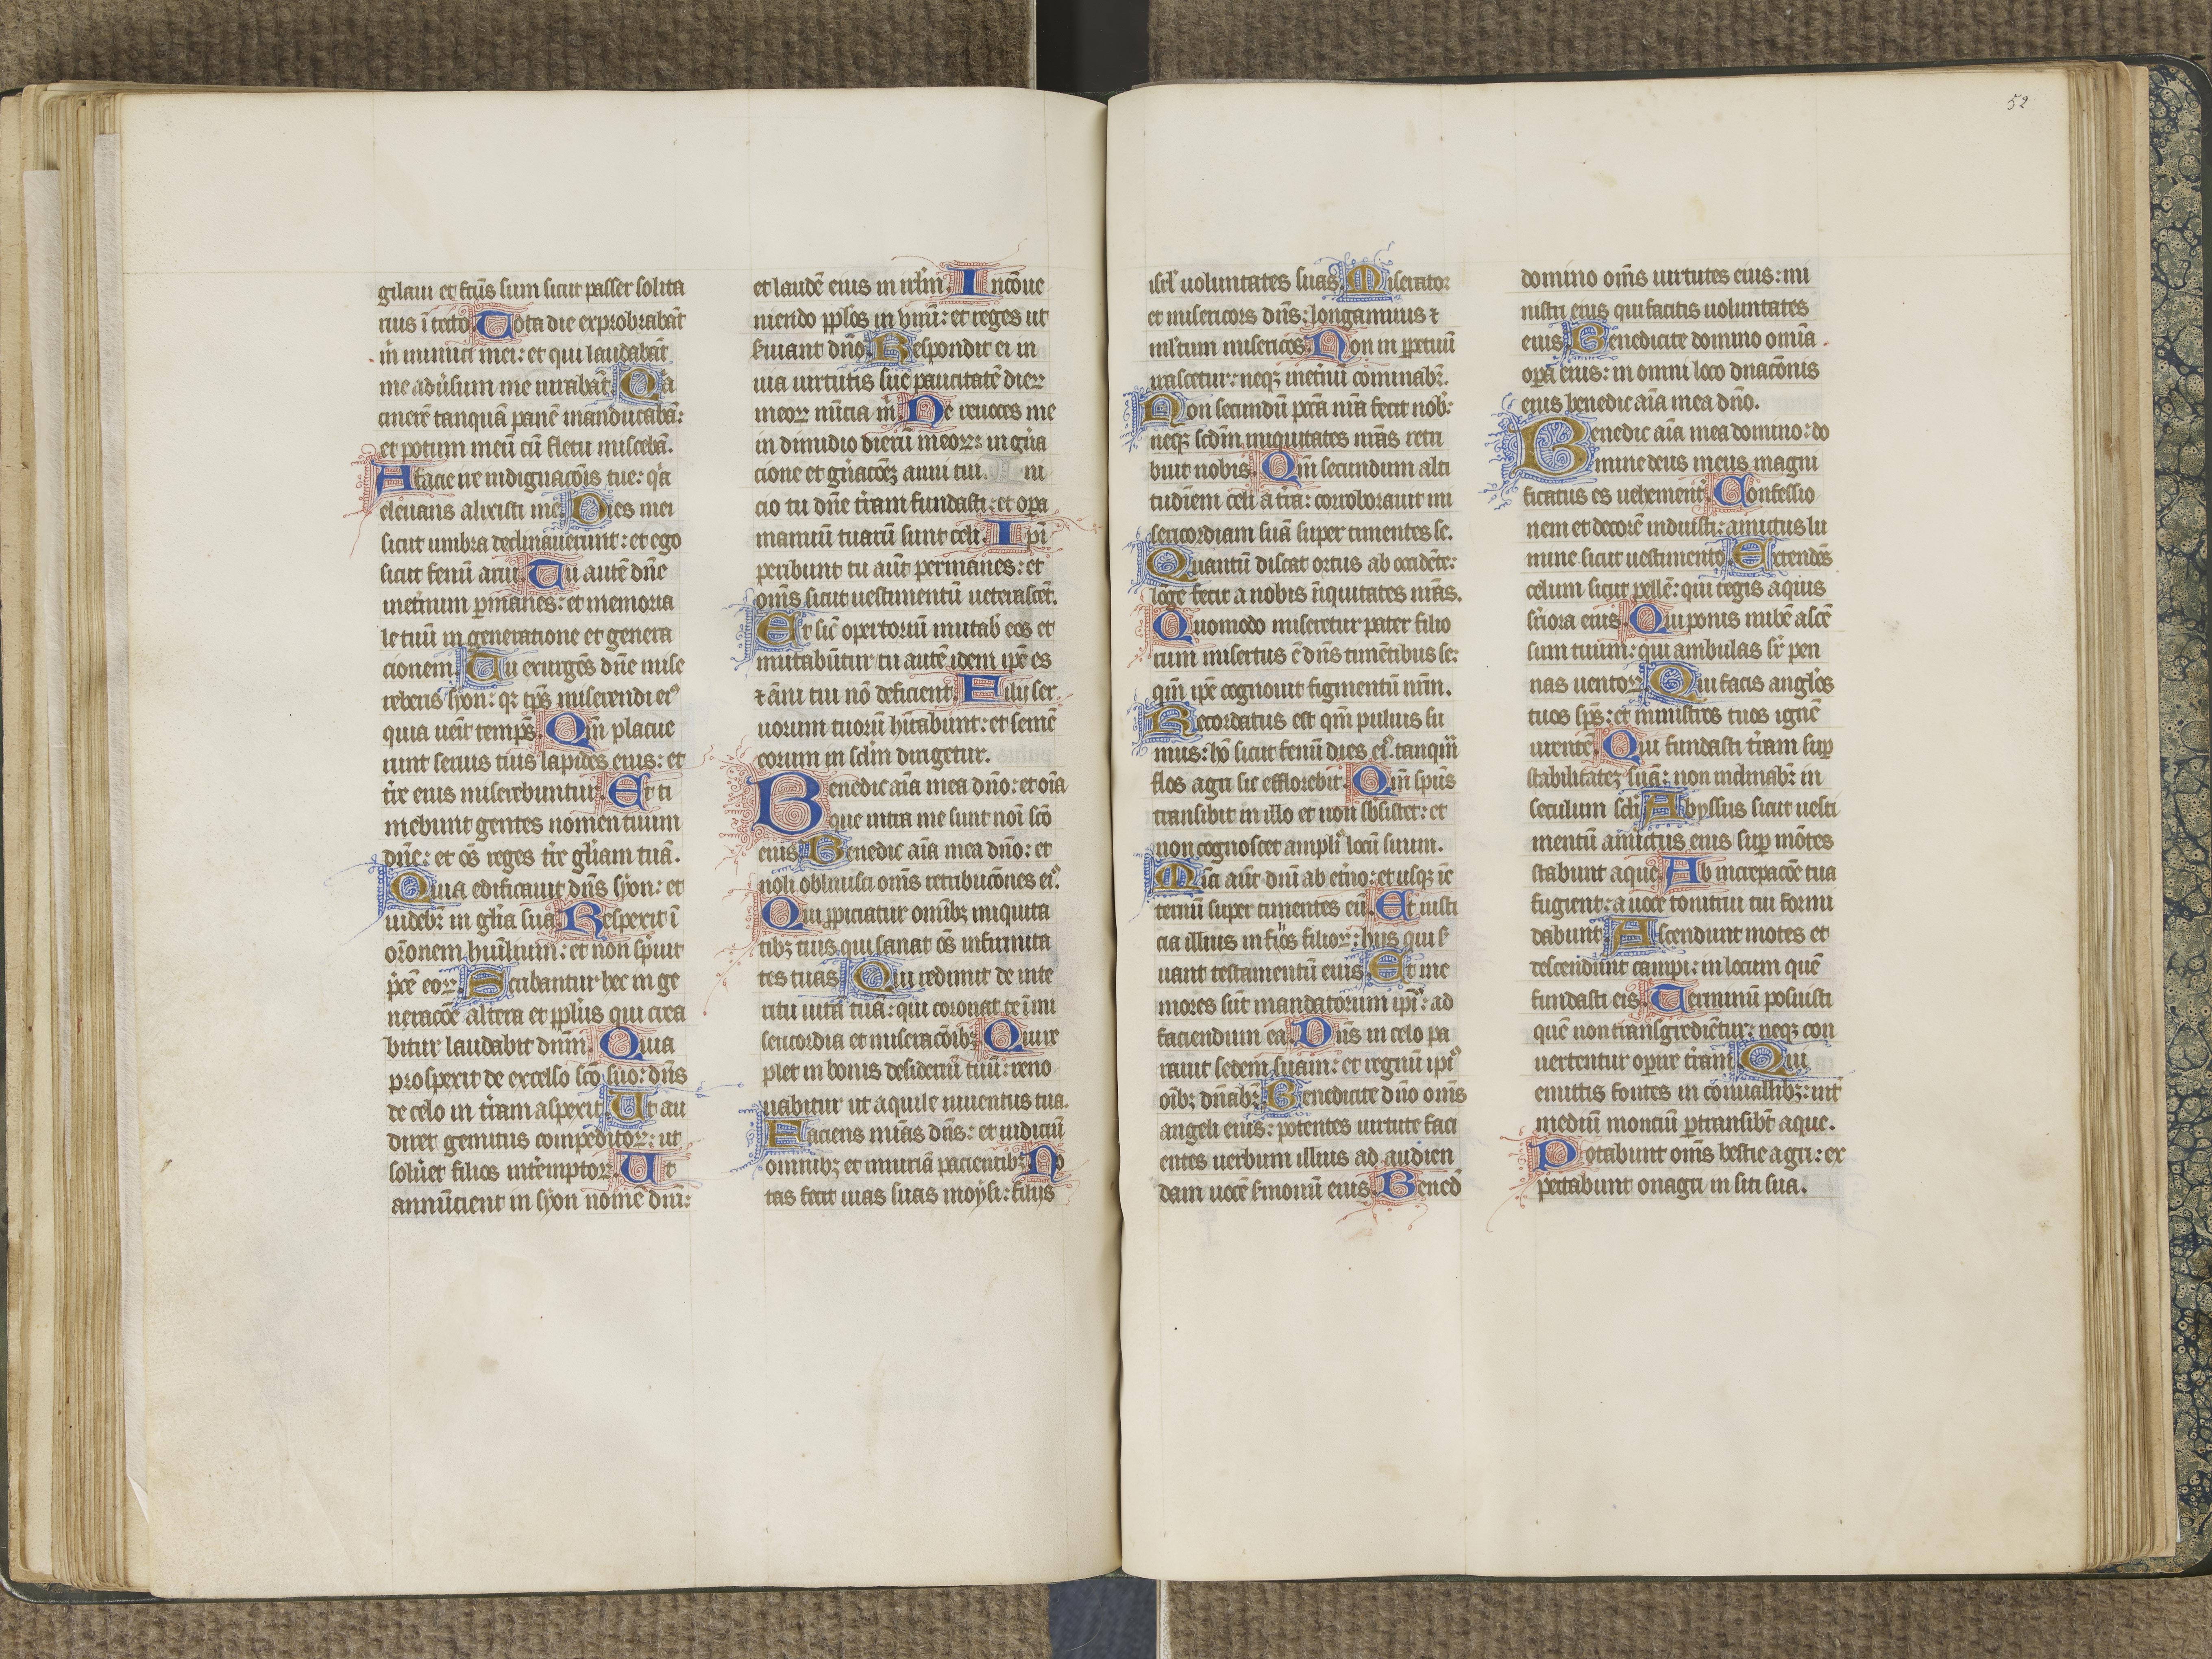 gilaui et fc̄us sum sicut passer solita
rius ī tecto. Tota die exprobrabāt
m̄ inimici mei: et qui laudabāt
me adūsum me iurabāt. Qa
cinerē tanquā panē manducabā:
et potum meū cū fletu miscebā.
A facie ire indignacōis tue: qa
eleuans alixisti me. Dies mei
sicut umbra declinauerunt: et ego
sicut fenū arui. Tu autē dn̄e
inet̄num ꝑmanes: et memoria
le tuū in generatione et genera
cionem. Tu exurgēs dn̄e mise
reberis syon: qr tp̄s miserendi eiꝰ
quia uēit temp̄s. Qm̄ placue
runt seruis tuis lapides eius: et
tr̄e eius miserebuntur. Et ti
mebunt gentes nomen tuum
dn̄e: et oēs reges tr̄e gl̄iam tuā.
Quia edificauit dn̄s syon: et
uidebr̄ in gl̄ia sua. Respexit ī
orōnem huīlium: et non sp̄uit
p̄cē eoꝝ. Scribantur hec in ge
neracōe altera et ppl̄us qui crea
bitur laudabit dnm̄. Quia
prospexit de excelso scō suo: dn̄s
de celo in tr̄am aspexit. Ut au
diret gemitus compeditoꝝ: ut
solūet filios intēemptoꝝ. Ut
annūcient in syon nomē dnī:
et laudē eius in irl̄m. In cōue
niendo pplōs in ynū: et reges ut
ẜuiant dn̄o. Respondit ei in
uia uirtutis sue paucitatē dieꝝ
meoꝝ nūcia m̄. Ne reuoces me
in dimidio dierū meoꝝ: in gn̄a
cione et gn̄acōeꝫ anni tui. Ini
cio tu dn̄e tr̄am fundasti: et oꝑa
manuū tuarū sunt celi. Ipī
peribunt tu aūt permanes: et
om̄s sicut uestimentū ueterascēt.
Et sic opertoriū mutab̄ eos et
mutabūtur tu autē idem ipē es
⁊ āni tui nō deficient. Filij ser
uorum tuorū hītabunt: et semē
eorum in scl̄m dirigetur.
Benedic aīa mea dn̄o: et oīa
que intra me sunt noī scō
eius. Benedic aīa mea dn̄o: et
noli obliuisci om̄s retribucōnes eiꝰ.
Qui ꝓpiciatur omībꝫ iniquita
tibꝫ tuis qui sanat oēs infirmita
tes tuas. Qui redimit de inte
ritu uitā tuā: qui coronat te ī mi
sericordia et miseracōibꝫ. Qui re
plet in bonis desideriū tuū: reno
uabitur ut aquile iuuentus tua.
Faciens mīas dn̄s: et iudiciū
omnibꝫ et iniuriā pacientibꝫ. No
tas fecit uias suas moysi: filijs
isrl̄ uoluntates suas. Miserator
et misericors dn̄s: longanimis ⁊
multum misericōs. Non in ꝑpetuū
irascetur: neqꝫ inet̄nū cominabr̄.
Non secundū pc̄cā nr̄a fecit nob̄:
neqꝫ scdm̄ iniquitates nr̄as retri
buit nobis. Qm̄ secundum alti
tudinem celi a tr̄a: corroborauit mi
sericordiam suā super timentes se.
Quantū distat ortus ab occidēte:
lōge fecit a nobis īiquitates nr̄as.
Quomodo miseretur pater filio
rum misertus ē dn̄s timētibus se:
qm̄ ipē cognouit figmentū nr̄m.
Recordatus est qm̄ puluis su
mus: hō sicut fenū dies eiꝰ. tanqm̄
flos agri sic efflorebit. Qm̄ spūs
transibit in illo et non sbsistet: et
non cognoscet ampliꝰ locū suum.
Mīa aūt dnī ab et̄no: et usqꝫ in
ternū super timentes eū. Et iusti
cia illius in filios filioꝝ: hijs qui ẜ
uant testamentū eius. Et me
mores sūt mandatorum ipīꝰ: ad
faciendum ea. Dn̄s in celo pa
rauit sedem suam: et regnū ipīꝰ
oībꝫ dn̄abr̄. Benedicite dn̄o om̄s
angeli eius: potentes uirtute faci
entes uerbum illius ad audien
dam uocē ẜmonū eius. Benedi
domino om̄s uirtutes eius: mi
nistri eius qui facitis uoluntates
eius. Benedicite domino omīa
opera eius: in omni loco dn̄acōnis
eius benedic aīa mea dn̄o.
Benedic aīa mea domino: do
mine deus meus magni
ficatus es uehement̄. Confessio
nem et decorē induisti: amictus lu
mine sicut uestimento. Extendēs
celum sicut pellē: qui tegis aquis
sr̄iora eius. Qui ponis nubē ascē
sum tuum: qui ambulas sr̄ pen
nas uentoꝝ. Qui facis angl̄os
tuos sp̄s: et ministros tuos ignē
urentē. Qui fundasti tr̄am suꝑ
stabilitateꝫ suā: non inclinabr̄ in
seculum scl̄i. Abyssus sicut uesti
mentū amictus eius suꝑ mōtes
stabunt aque. Ab increpacōe tua
fugient: a uoce tonitrui tui formi
dabunt. Ascendunt motes et
descendūnt campi: in locum quē
fundasti eis. Terminū posuisti
quē non transgredientur: neqꝫ con
uertentur oꝑire tr̄am. Qui
emittis fontes in conuallibꝫ: int̄
mediū monciū ꝑtransibt̄ aque.
Potabunt om̄s bestie agri: ex
pectabunt onagri in siti sua.
52